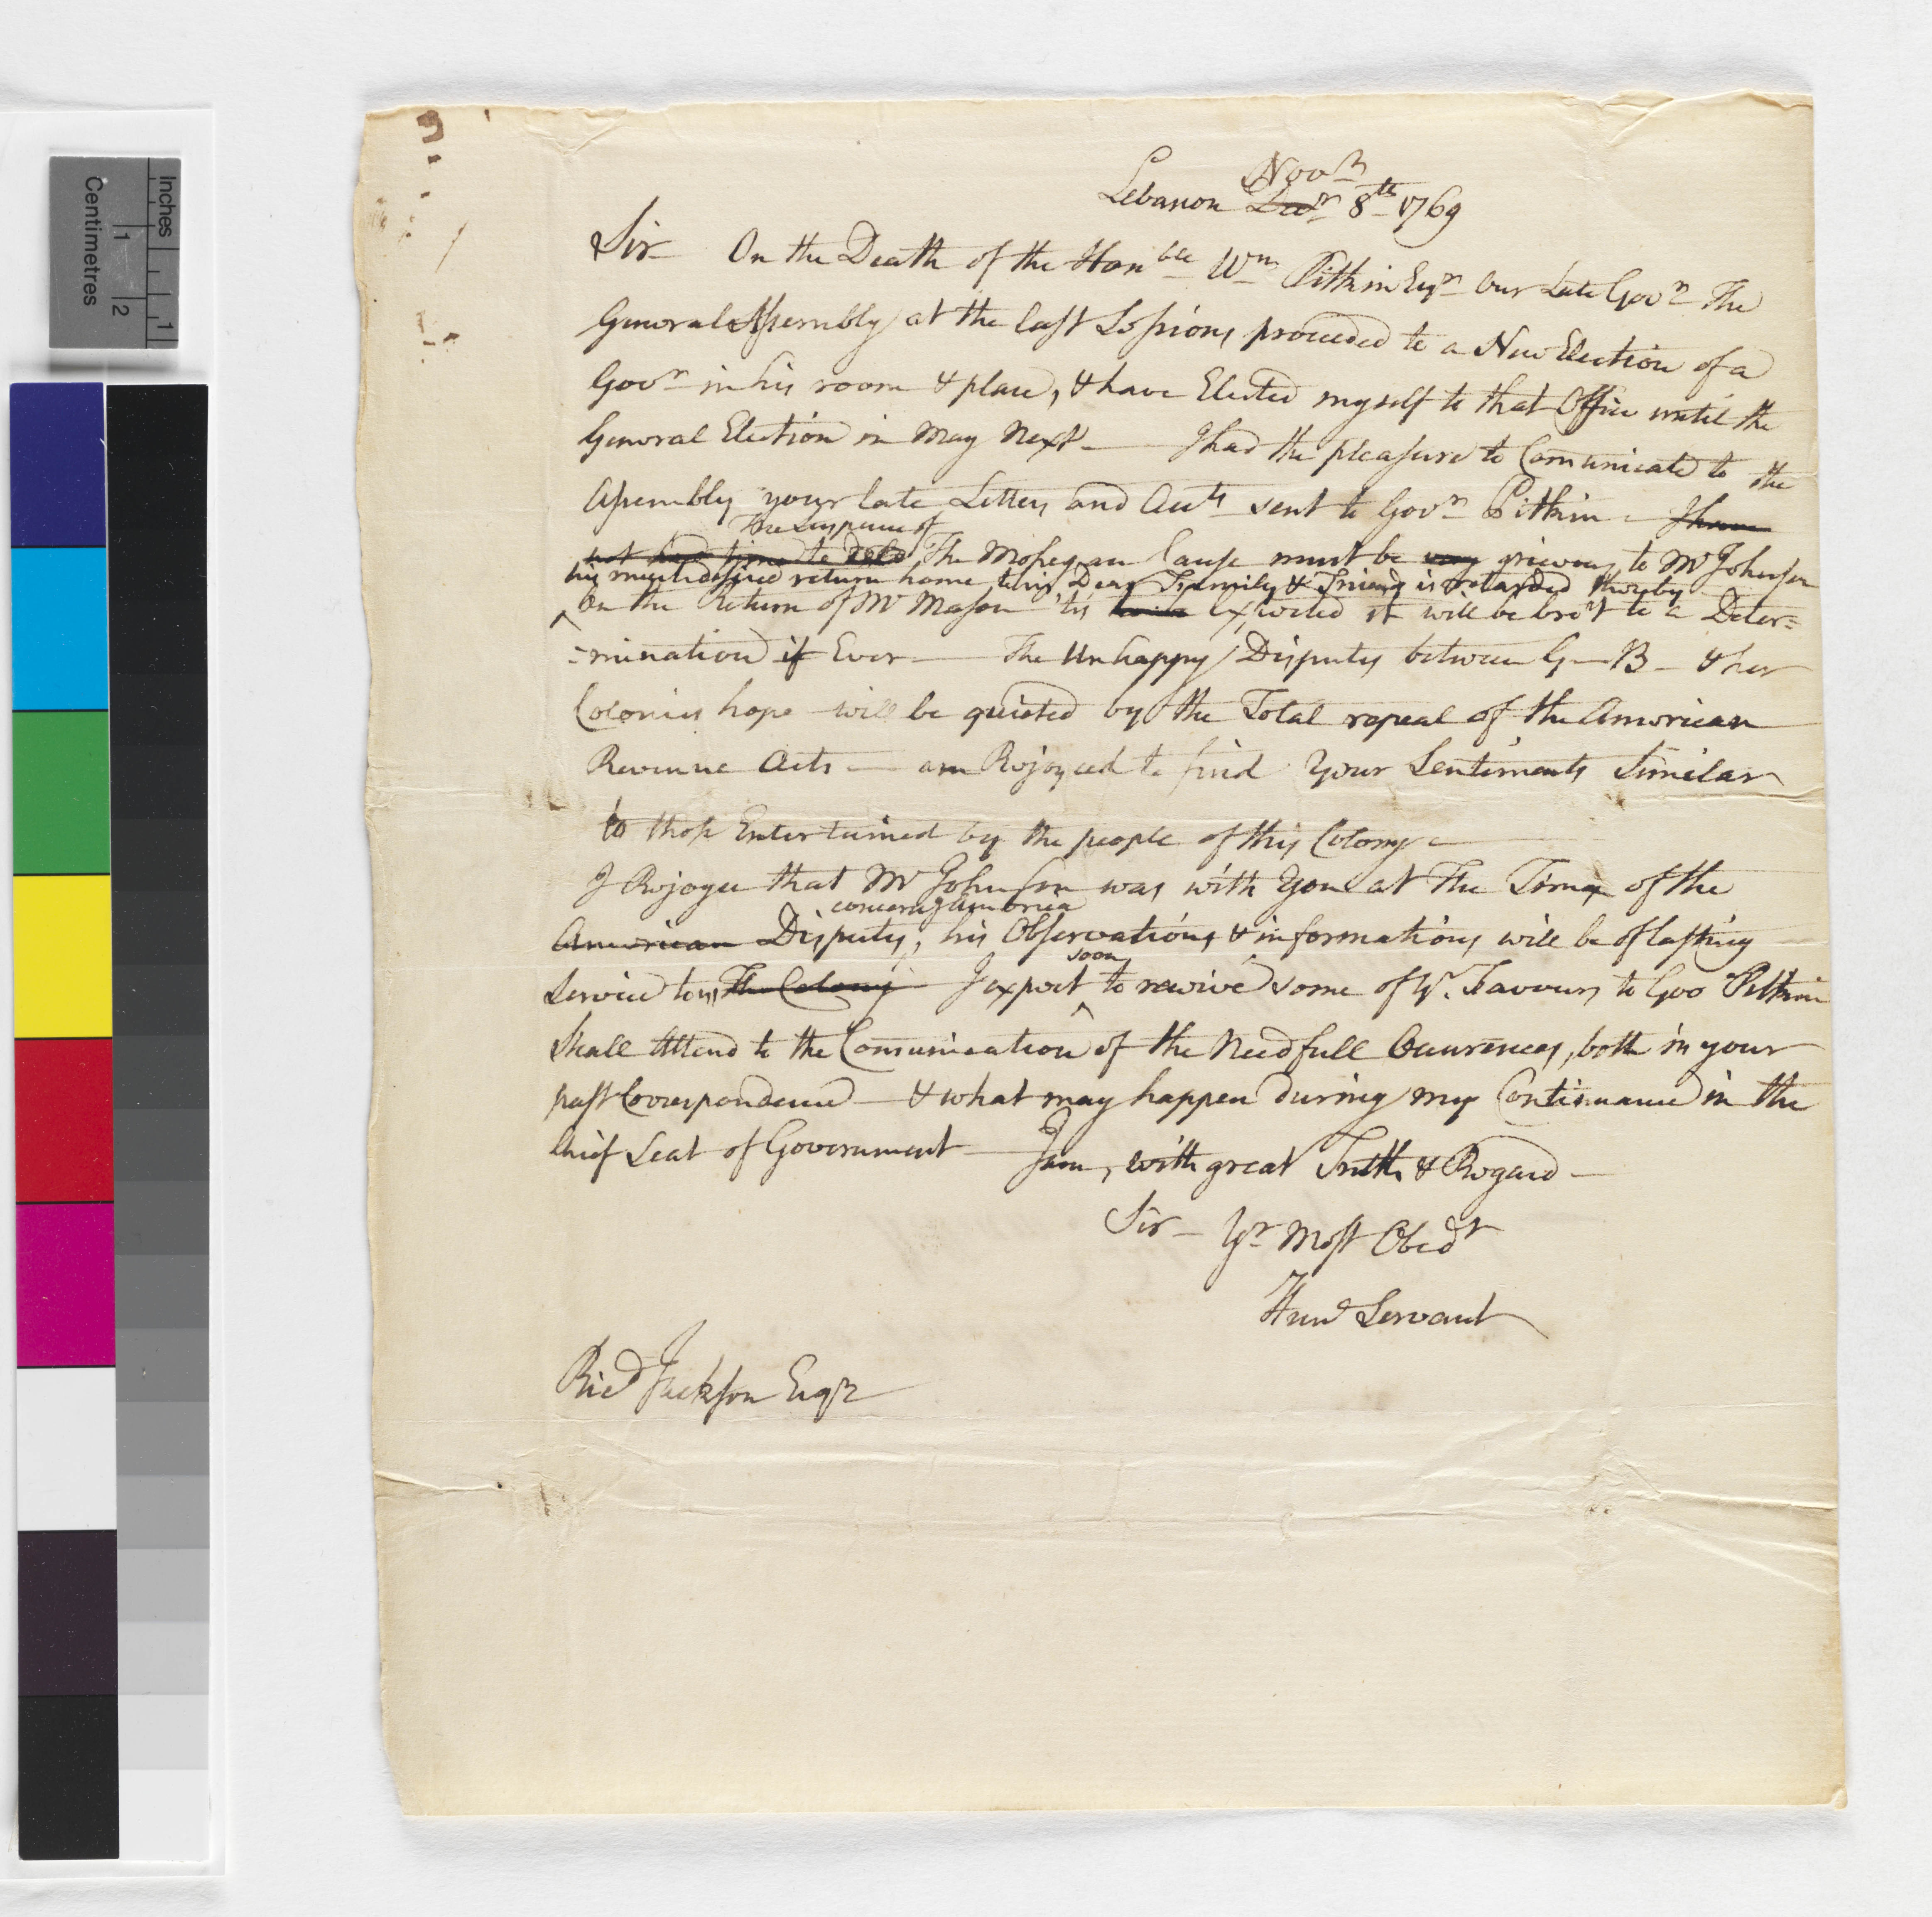 Inches
Centimetres
1
2
1
Novr
Lebanon Decr 8th 1769
Sir On the Death of the Honble Wm Pitkin Esqr Our Late Govr The
General Assembly at the last Sessions proceeded to a New Election of a
Govr in his room & place, & have Elected myself to that Office until the
General Election in May Next — I had the pleasure to Comunicate to the
Assembly your late Letters and Accts sent to Govr Pitkin – I have
The Suspence of
not had time to The Mohegan Cause must be very grievous to Mr Johnson
his much desired return home to his Dear Family & Friends is retarded thereby
On the Return of Mr Mason 'tis Expected it will be bro't to a Deter=
=mination if Ever — The Unhappy Disputes between G— B— & her
Colonies hope will be quieted by the Total repeal of the American
Revenue Acts — am Rejoyced to find Your Sentiments Similar
to those Entertained by the people of this Colony —
I Rejoyce that Mr Johnson was with You at The Time of the
concerng America
American Disputes, his Observations & informations will be of lasting
soon
Service to us The Colony I expect to receive some of Yr. Favours to Gov Pitkin
Shall Attend to the Comunication of the Needfull Occurences, both in your
past Correspondence — & what may happen during my Continuance in the
Chief Seat of Government — I am, with great Truth & Regard —
Sir — Yr Most Obedt
Hume Servant
Ricd Jackson Esqr